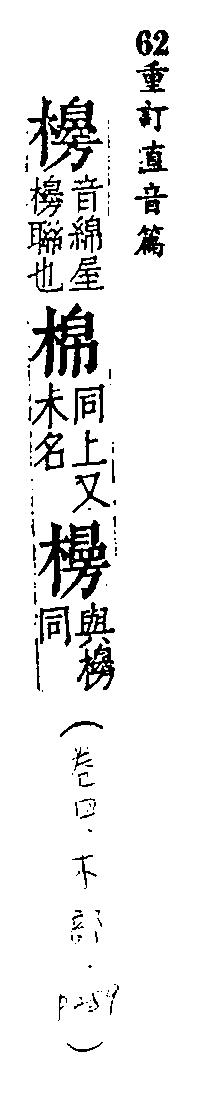 62重訂直音篇
櫋音綿屋
櫋聯也
棉同上又
木名
與櫋
同
(卷四.木部.P259)